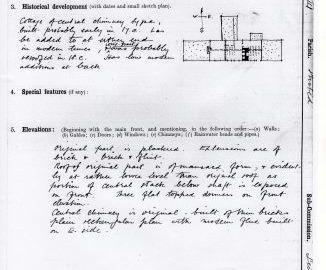 3. Historical development (with dates and small sketch plan).
Cottage of central chimney type,
built probably early in 17 c. Has
be added to at either end
in modern times, & was probably
reroofed in 18 c. Has low modern
additions at back
4. Special features (if any):
5. Elevations: (Beginning with the main front, and mentioning, in the following order:—(a) Walls;
(b) Gables; (c) Doors; (d) Windows; (e) Chimneys; (f) Rainwater heads and pipes.)
Original part is plastered. Extensions are of
brick & brick & flint.
Roof of original part is of mansard form, & evident-
ly at rather lower level than original roof as
portion of central stack below shaft is exposed
on front. Three flat topped dormers on front
elevation.
Central chimney is original - built of thin bricks
plain rectangular plan with modern flue built
on E. side
Parish.
Sub-Commission.